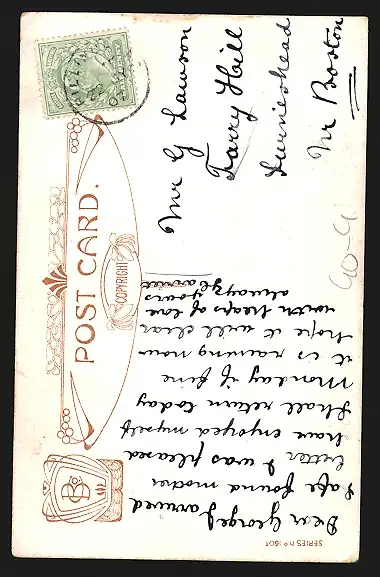 POST CARD.
COPYRIGHT
B Co
Mr G Lawson
Tarry Hill
Nr Boston
Dear George, arrived
safe found mother
better I was pleased
have enjoyed myself
shall return today
Monday if fine
it is raining now
hope it will clear
with heaps of love
always yours
SERIES No 1601